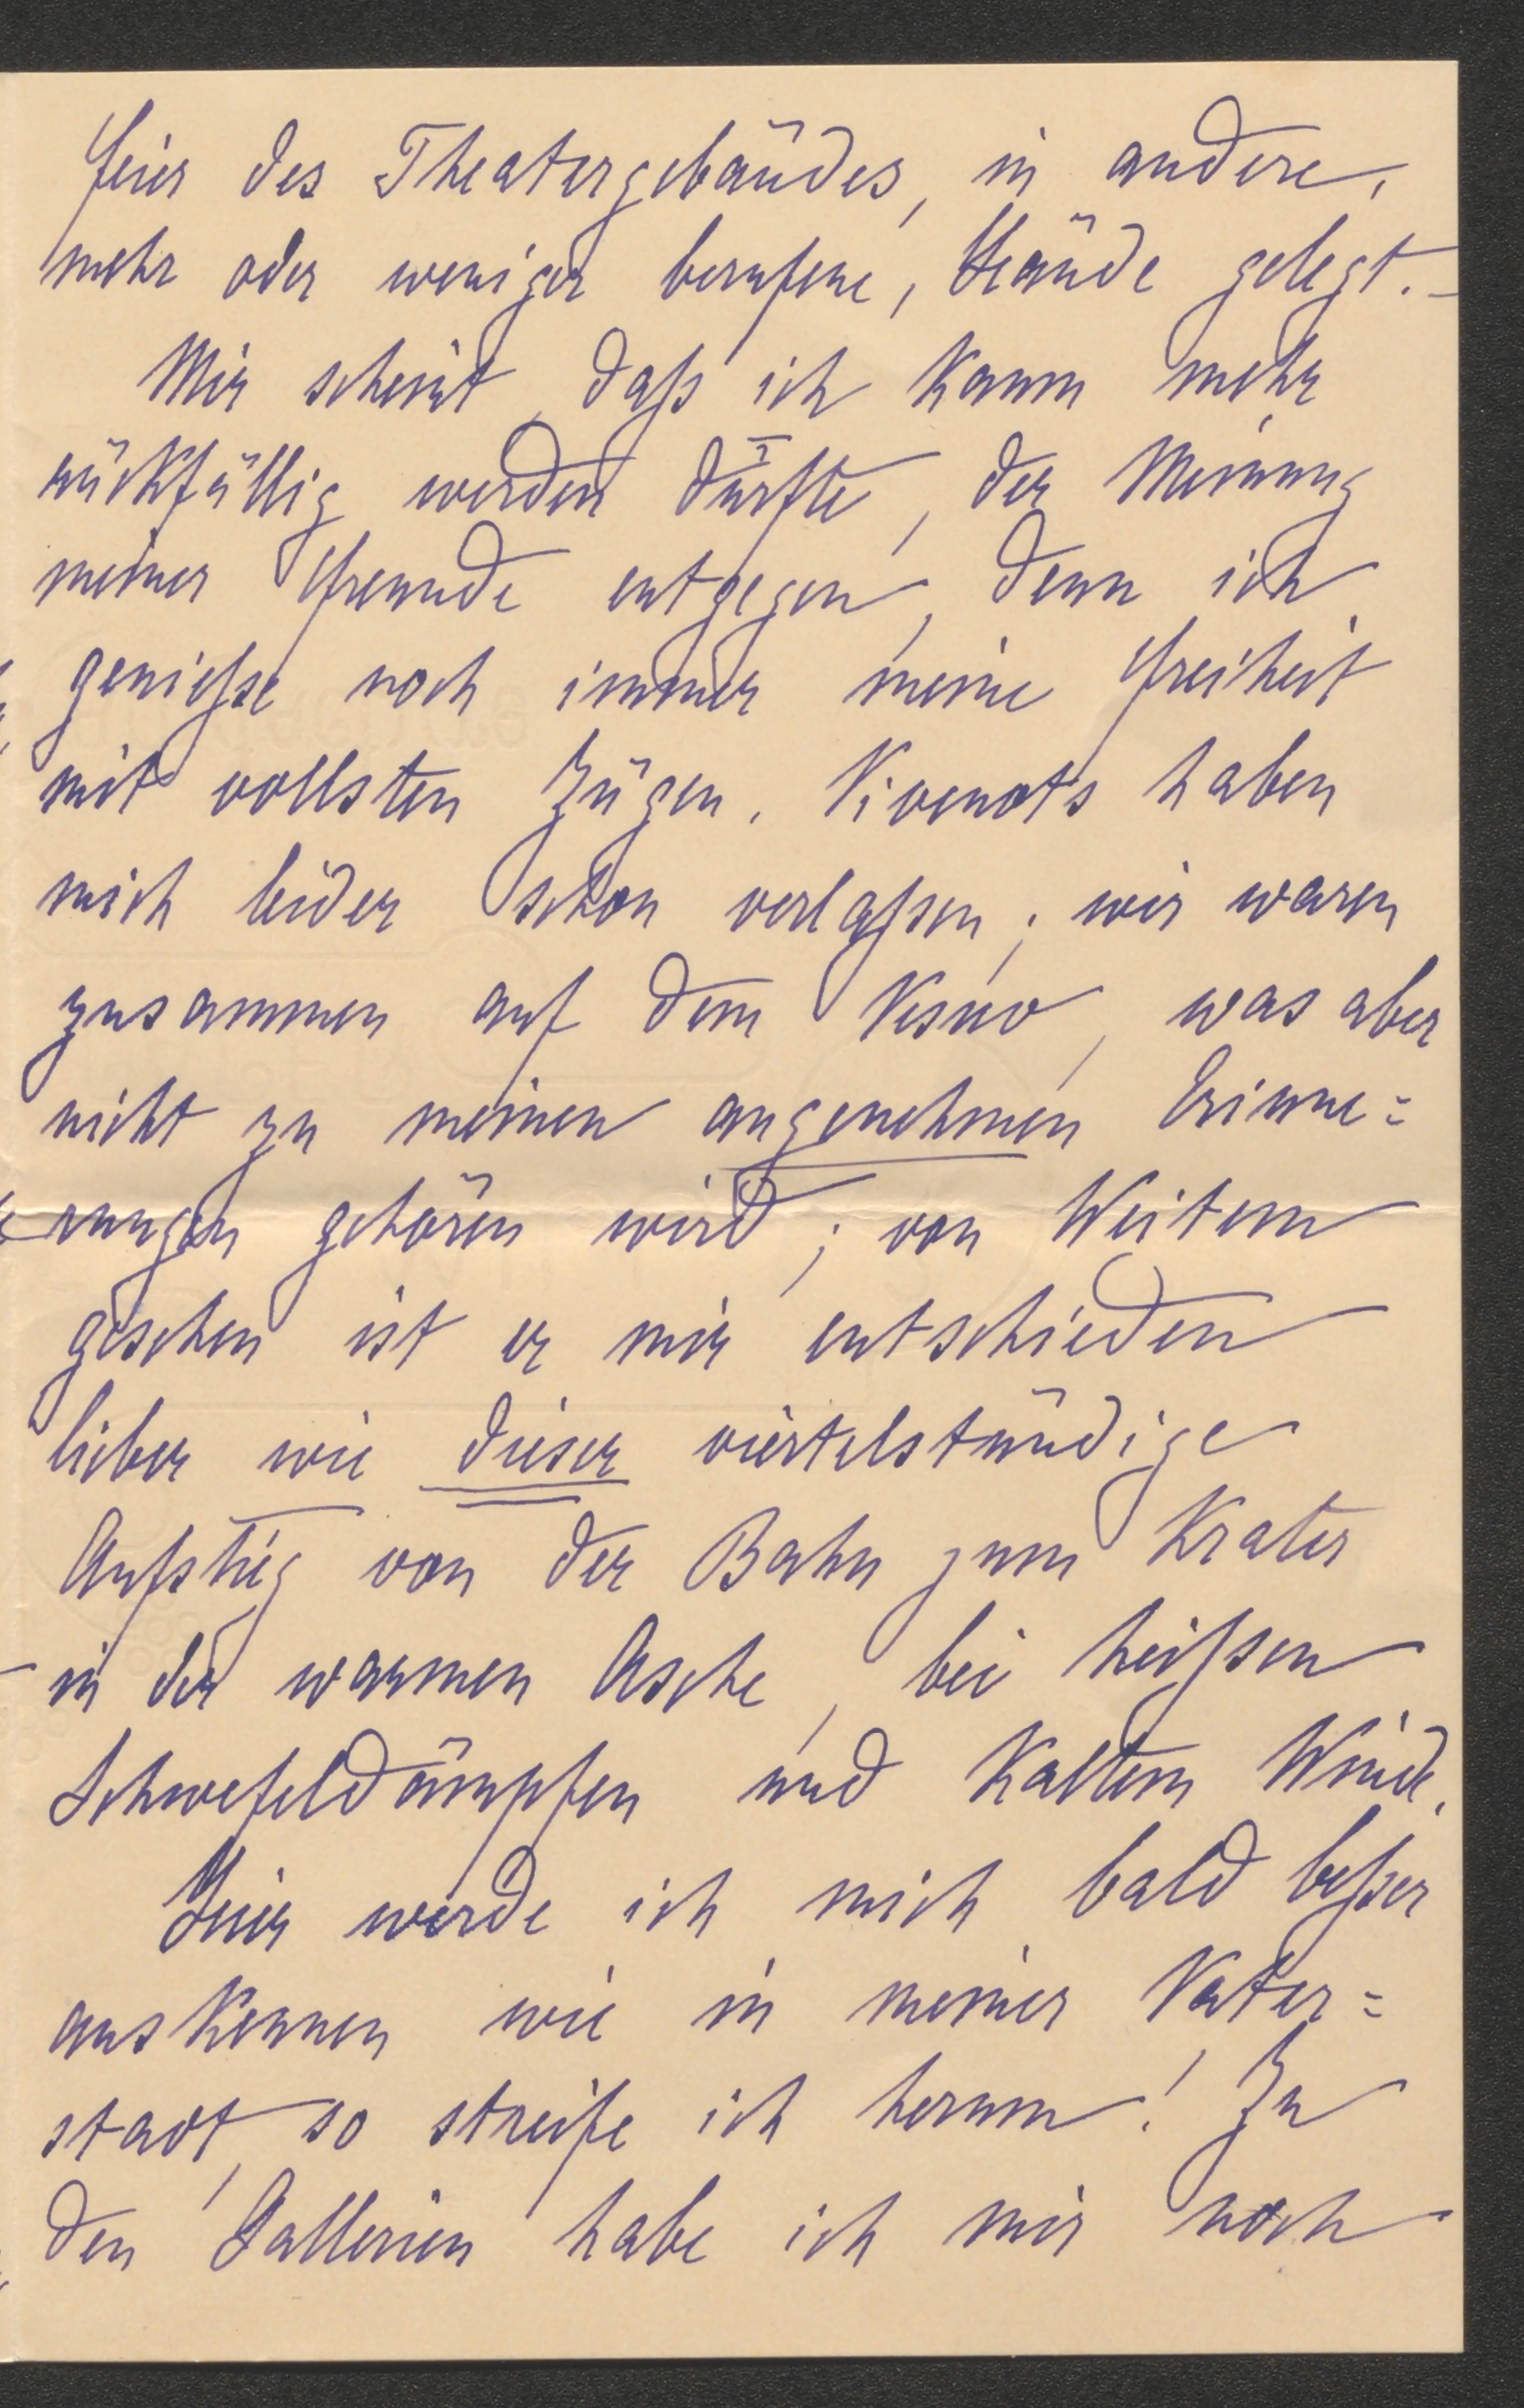 feier des Theatergebäudes, in andere,
mehr oder weniger berufene, Hände gelegt. –
Mir scheint, daß ich kaum mehr
rückfällig werden dürfte, der Meinung
meiner Freunde entgegen, denn ich
genieße noch immer meine Freiheit
mit vollsten Zügen. Vivenots haben
mich leider schon verlaßen; wir waren
zusammen auf dem Vesuv, was aber
nicht zu meinen angenehmen Erinne=
rungen gehören wird; von Weitem
gesehen ist er mir entschieden
lieber wie dieser viertelstündige
Aufstieg von der Bahn zum Krater
in der warmen Asche, bei heißen
Schwefeldämpfen und kaltem Winde.
Hier werde ich mich bald beßer
auskennen wie in meiner Vater=
stadt, so streife ich herum! In
den Gallerien habe ich mir noch